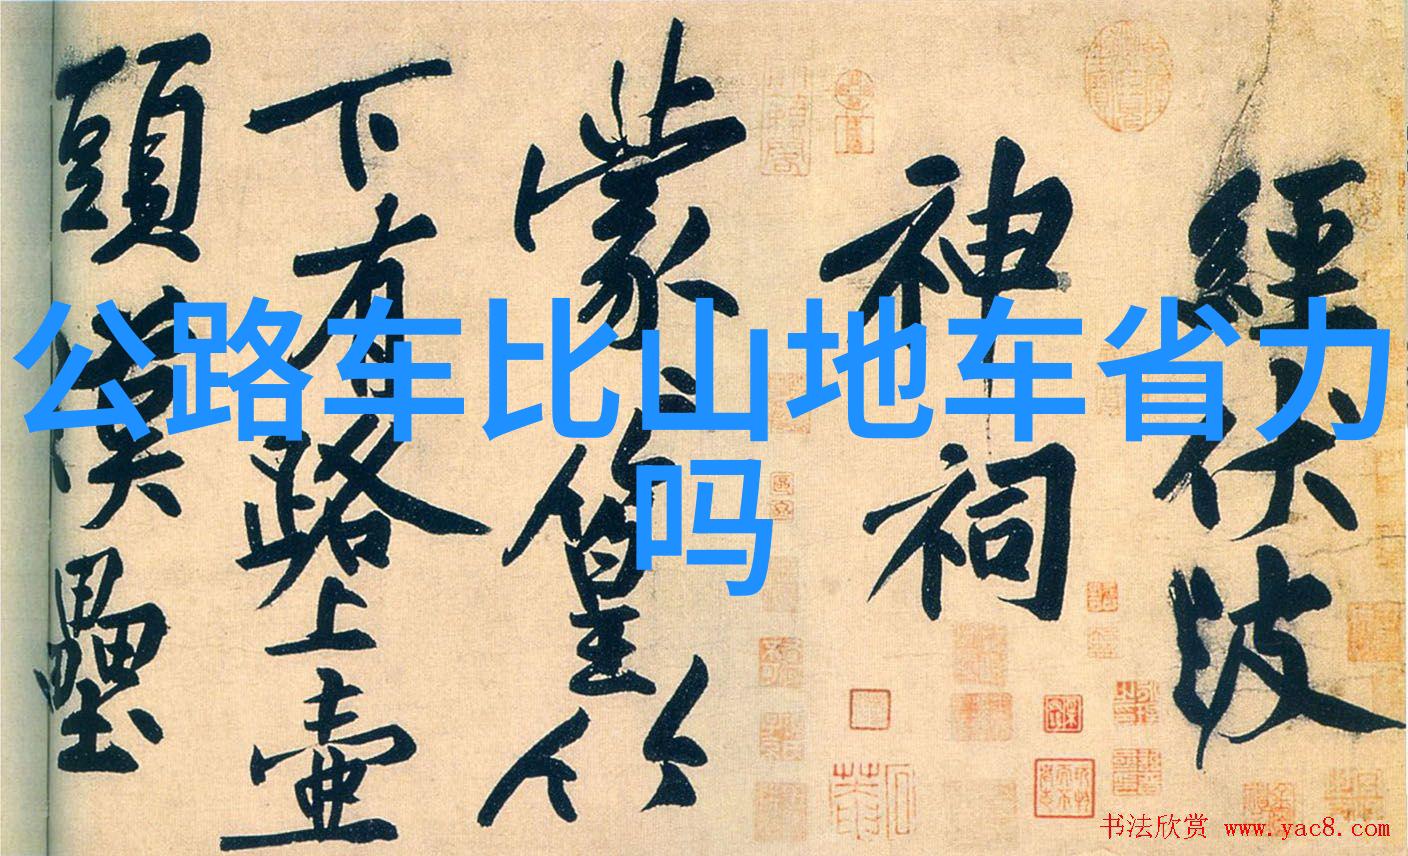 經伏波
神祠
蒙蒙篁竹
下有路上壺
頭漢壘
公路车比山地车省力
吗
书法欣赏 www.yac8.com